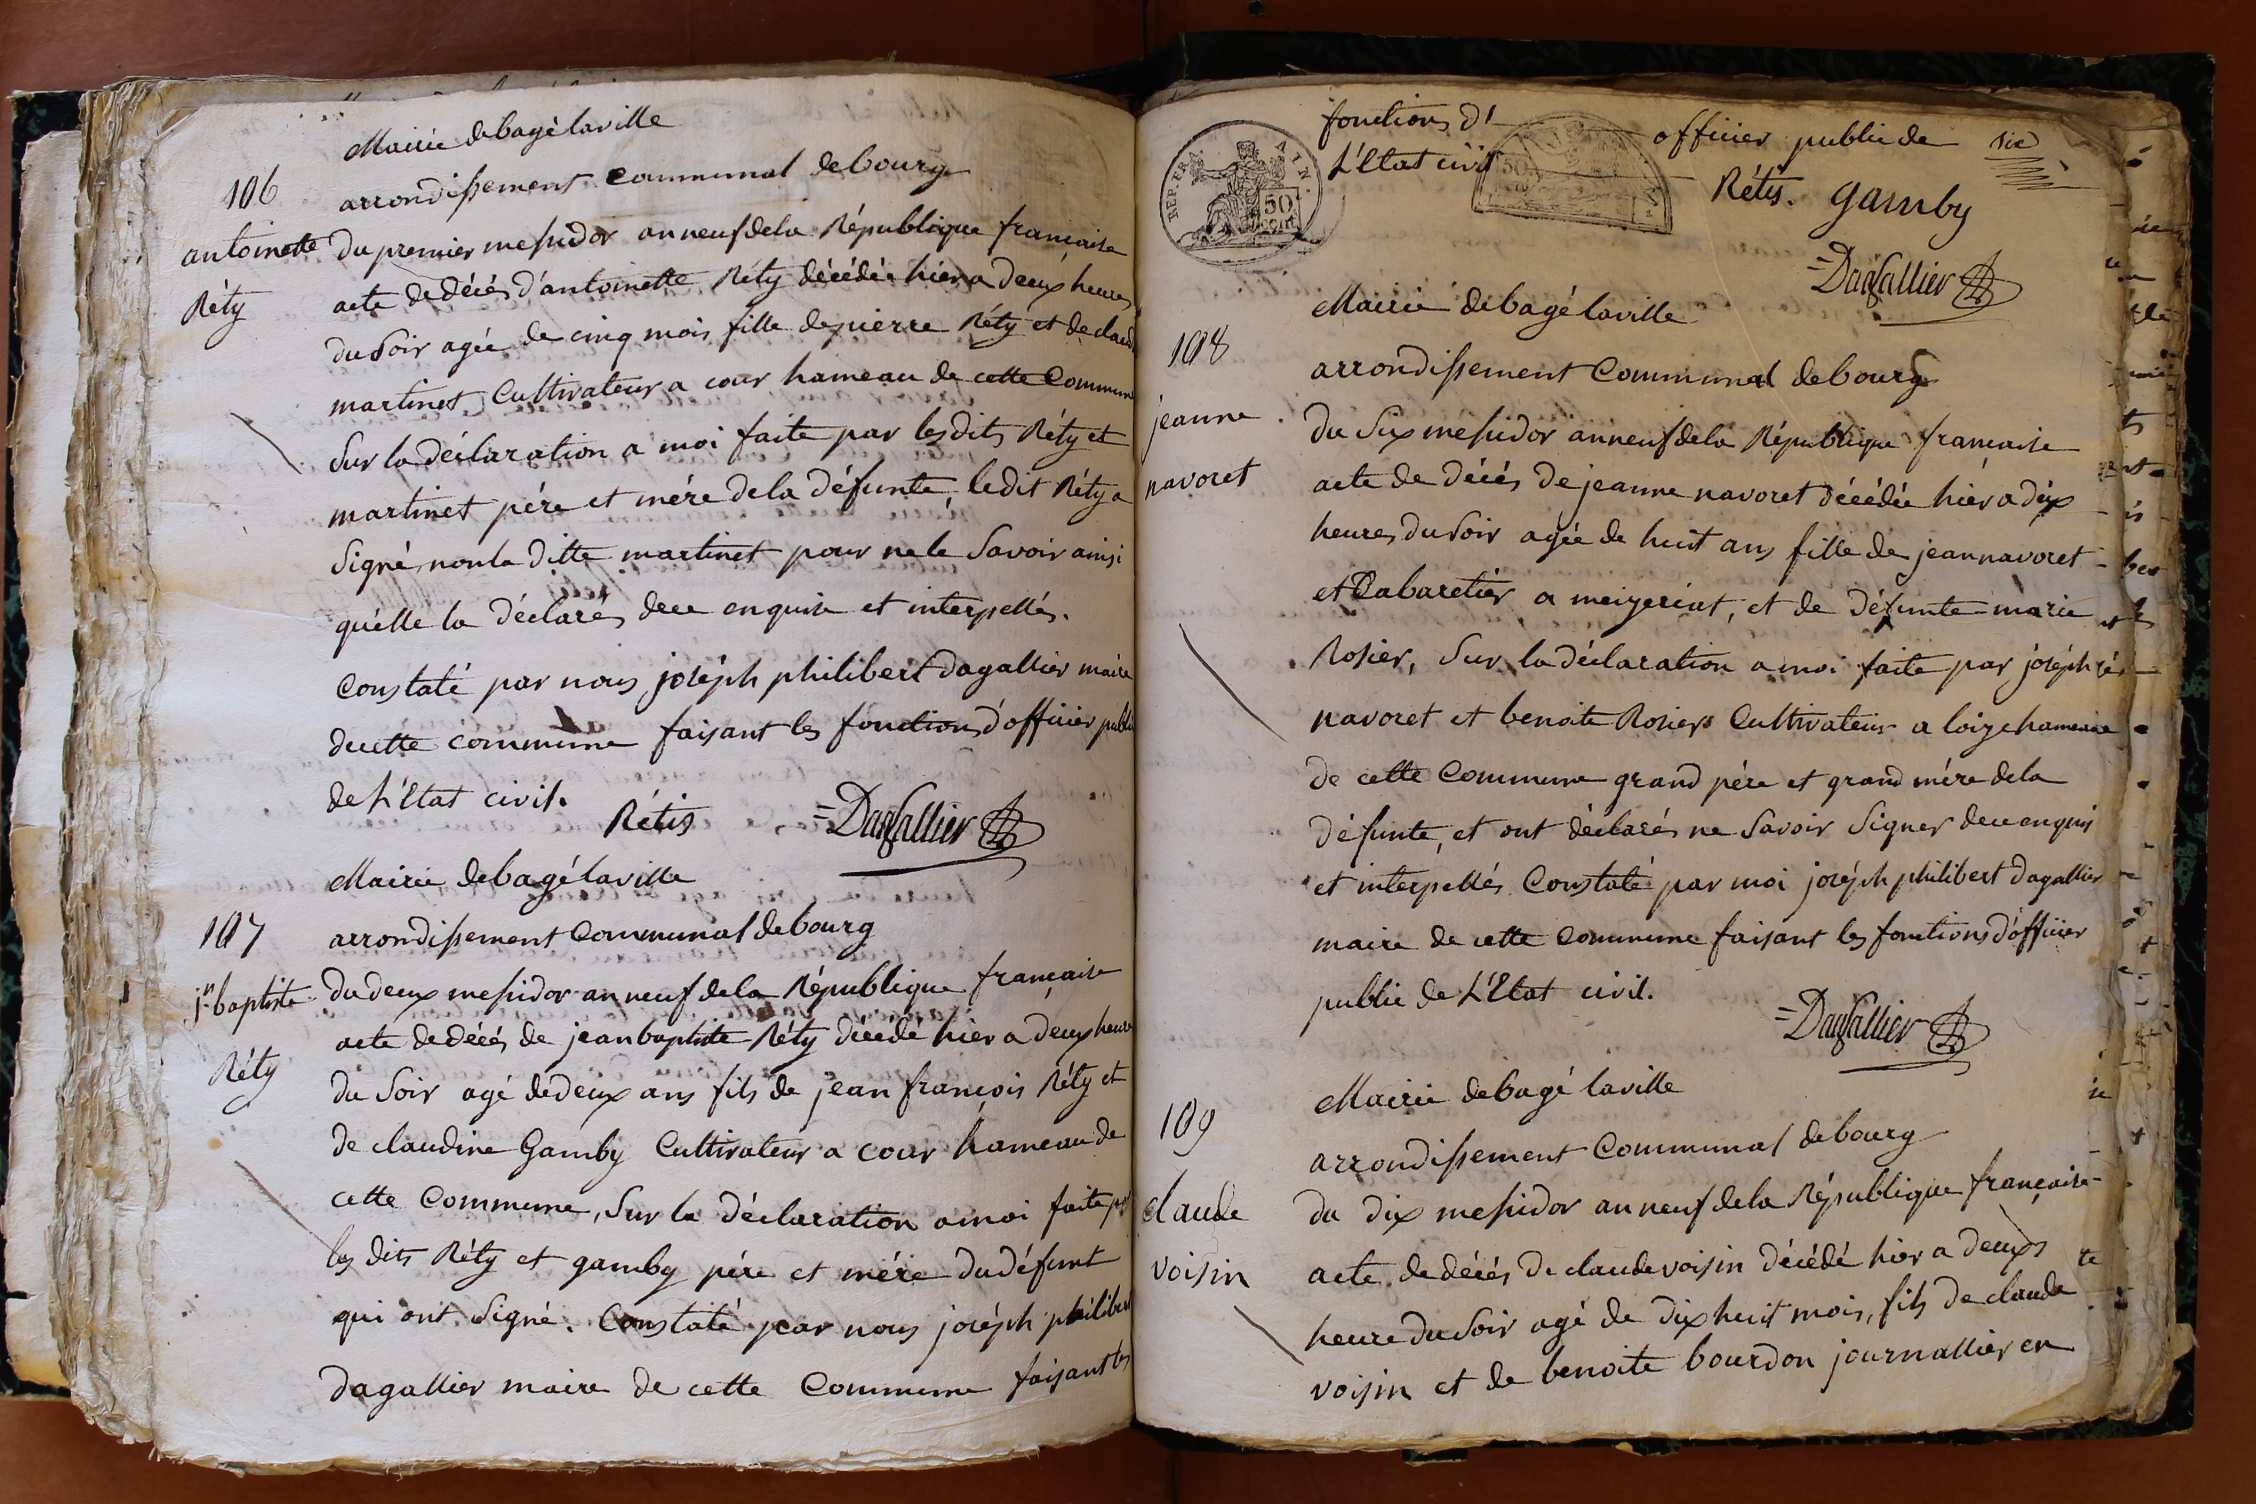 Mairie debagé laville
106
arrondissement communal debourg
antoinette
Réty
du premier messidor an neuf dela République francaise
acte de décés d'antoinette Réty décédée hier a deux heures
du Soir agée de cinq mois fille de pierre Réty et de claud
martinet Cultivateur a cour hameau de cette Commune
Sur la déclaration a moi faite par lesdits Réty et
martinet pére et mére dela défunte, ledit Réty a
Signé, non la ditte martinet pour ne le Savoir ainsi
qu'elle la déclarés dece enquise et interpellés.
Constaté par nous joséph philibert dagallier maire
decette commune faisant les fonctions d'officier public
de L'Etat civil.
Rétis =Dagallier
Mairie debagé laville
107
arrondissement Communal debourg
jn baptiste
Réty
du deux messidor an neuf dela République francaise
acte dedécés de jean baptiste Réty décédé hier a deux heures
du Soir agé dedeux ans fils de jean françois Réty et
de claudine Gamby Cultivateur a cour hameau de
cette Commune, Sur la déclaration a moi faite par
les dits Réty et gamby pére et mére du défunt
qui ont Signé. Constaté par nous joséph philibert
dagallier maire de cette Commune faisant les
fonctions d' officier public de
L'Etat civil
REP. FRA. AIN.
50
CENT.
50
Rétis. gamby
=Dagallier
Mairie debagé laville
108
arrondissement Communal debourg
jeanne
navoret
du Six messidor an neuf dela République francaise
acte de décés de jeanne navoret décédée hier a dix
heures du Soir agée de huit ans fille de jean navoret
et Cabaretier a meizeriat, et de défunte marie
Rosier, Sur la déclaration a moi faite par joséph
navoret et benoite Rosier Cultivateur a loize hameau
de cette Commune grand pére et grand mére dela
défunte, et ont déclarés ne Savoir Signer dece enquis
et interpellés Constaté par moi joséph philibert dagallier
maire de cette Commune faisant les fonctions d'officier
public de L'Etat civil.
=Dagallier
Mairie debagé laville
109
arrondissement Communal debourg
claude
voisin
du dix messidor an neuf dela République française
acte dedécés de claude voisin décédé hier a deux
heure du Soir agé de dix huit mois, fils de claude
voisin et de benoite bourdon journallier en